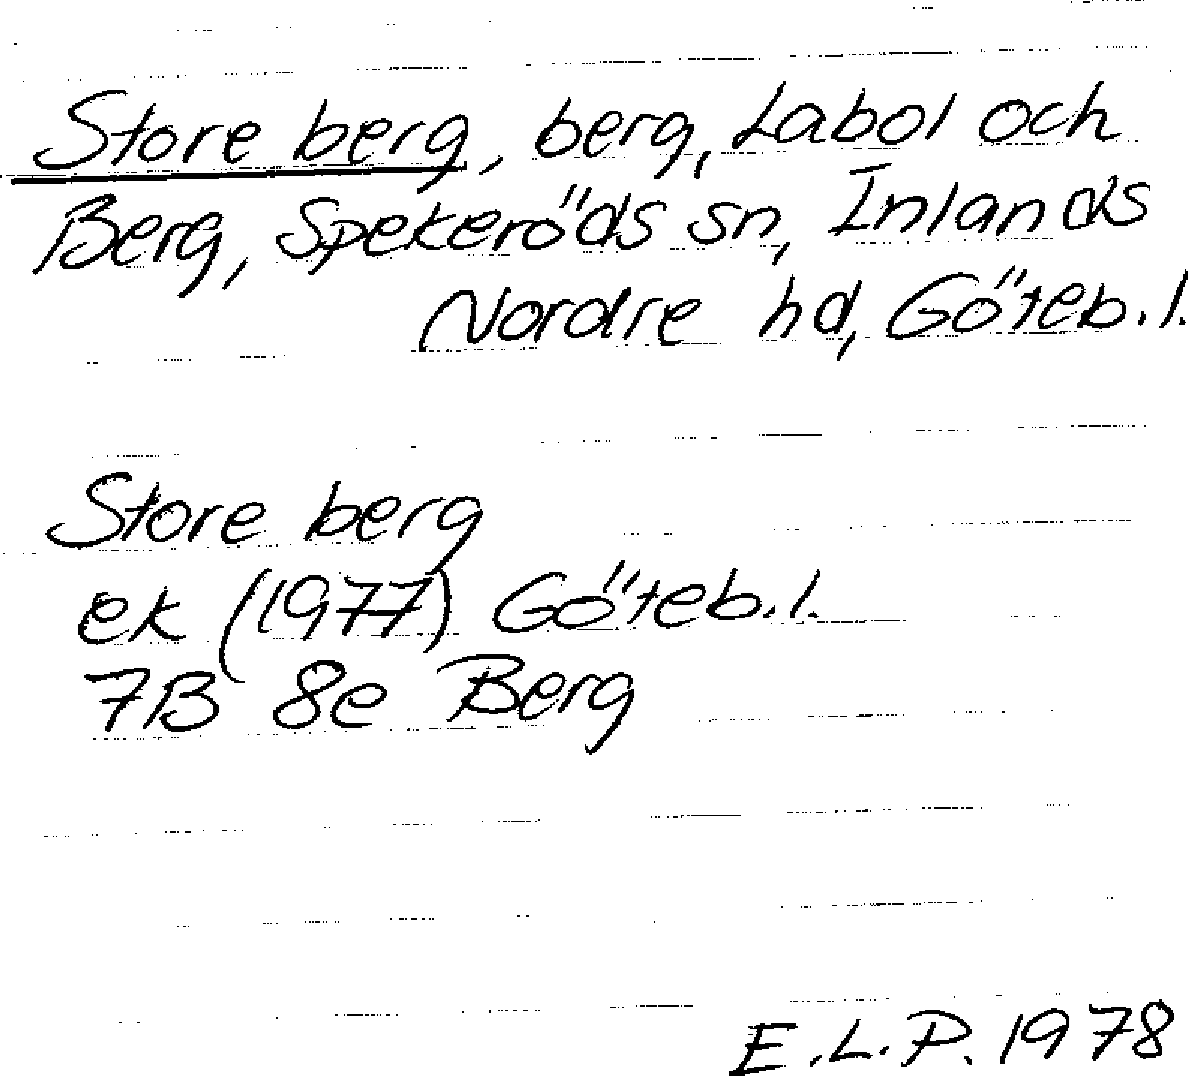 Store berg, berg, Labol och
Berg, Spekeröds sn, Inlands
Nordre hd, Göteb. l.
Store berg
ek (1977) Göteb. l.
7B 8e Berg
E.L.P. 1978